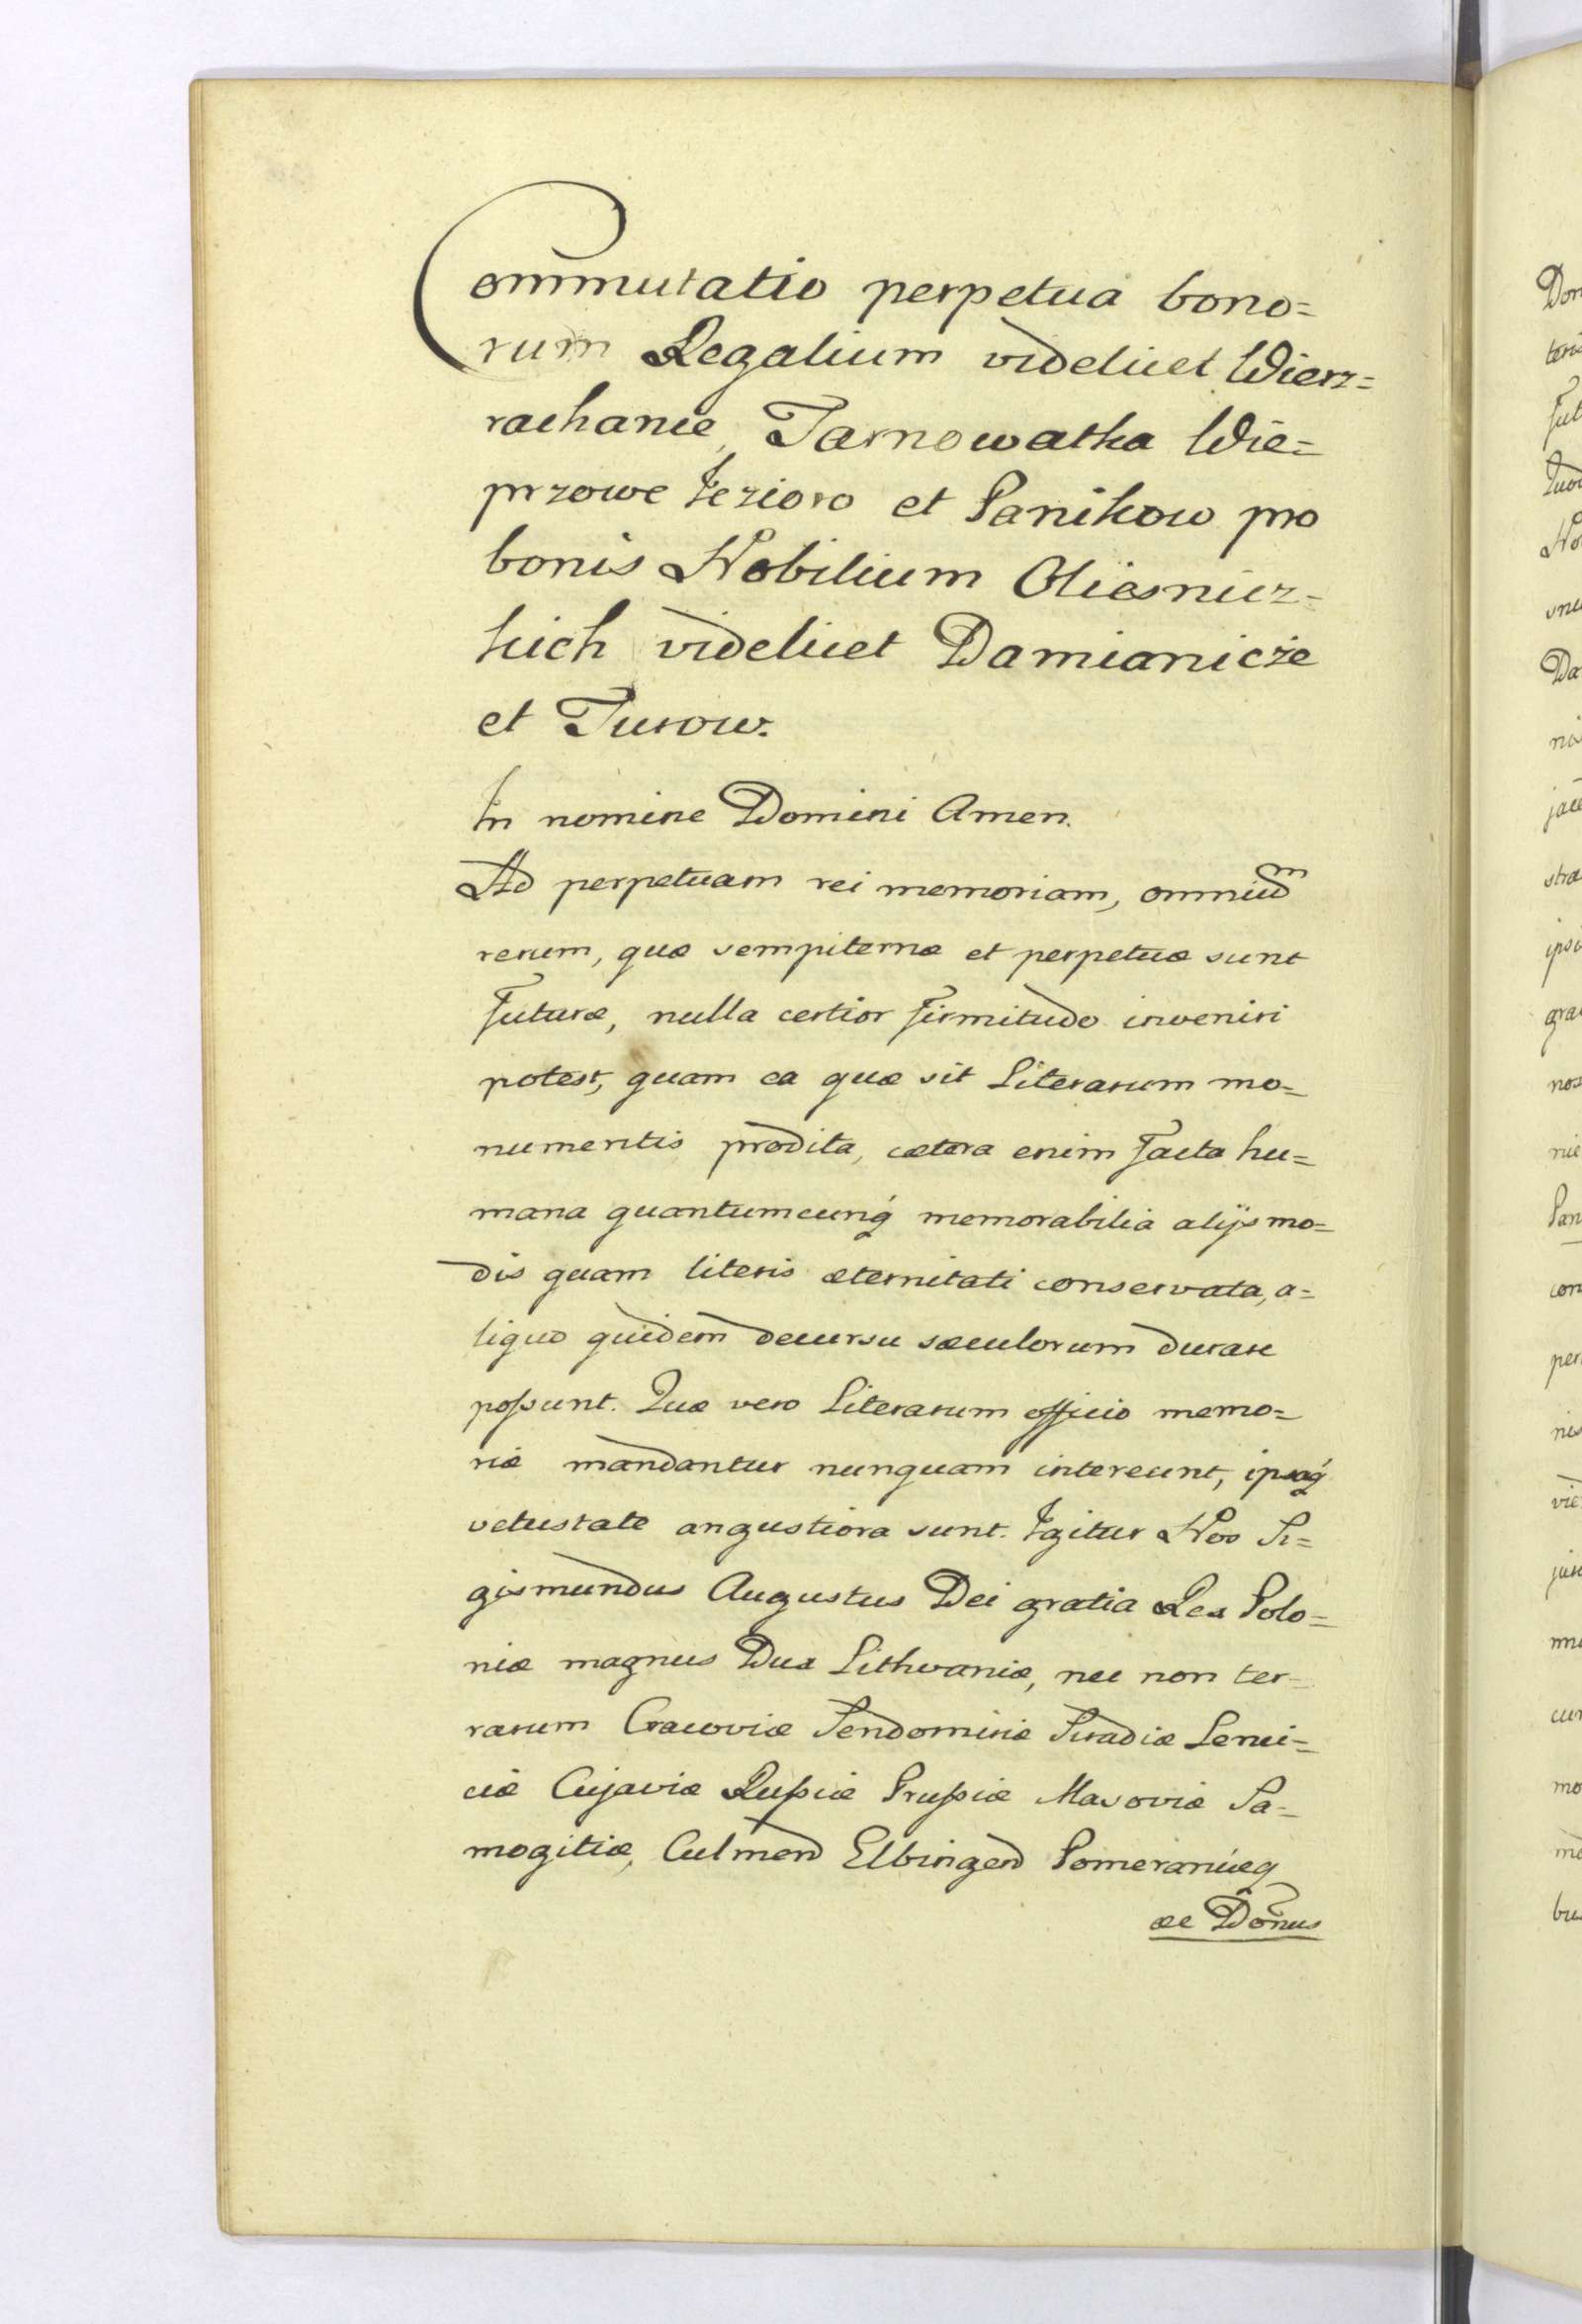 Commutatio perpetua bono=
rum Regalium videlicet Wierz=
rachance, Tarnowatka Wie=
przowe Jezioro et Panikow pro
bonis Nobilium Oliesnicz=
kich videlicet Damianicze
et Turow.
In nomine Domini Amen.
Ad perpetuam rei memoriam, omnium
rerum, quæ sempiternæ et perpetuæ sunt
futuræ, nulla certior firmitudo inveniri
potest, quam ea quæ sit Literarum mo=
numentis prodita, cætera enim facta hu=
mana quantumcunq́ memorabilia alijs mo=
dis quam literis æternitati conservata, a=
liquo quidem decursu sæculorum durare
possunt. Quæ vero Literarum officio memo=
riæ mandantur nunquam intereunt, ipsaq́
vetustate angustiora sunt. Igitur Nos Si=
gismundus Augustus Dei gratia Rex Polo=
niæ magnus Dux Lithvaniæ, nec non ter=
rarum Cracoviæ Sendomiriæ Siradiæ Lenci=
ciæ Cujaviæ Russiæ Prussiæ Masoviæ Sa=
mogitiæ, Culmen Elbingen Pomeraniæq
ac Dom̃nus
Dom